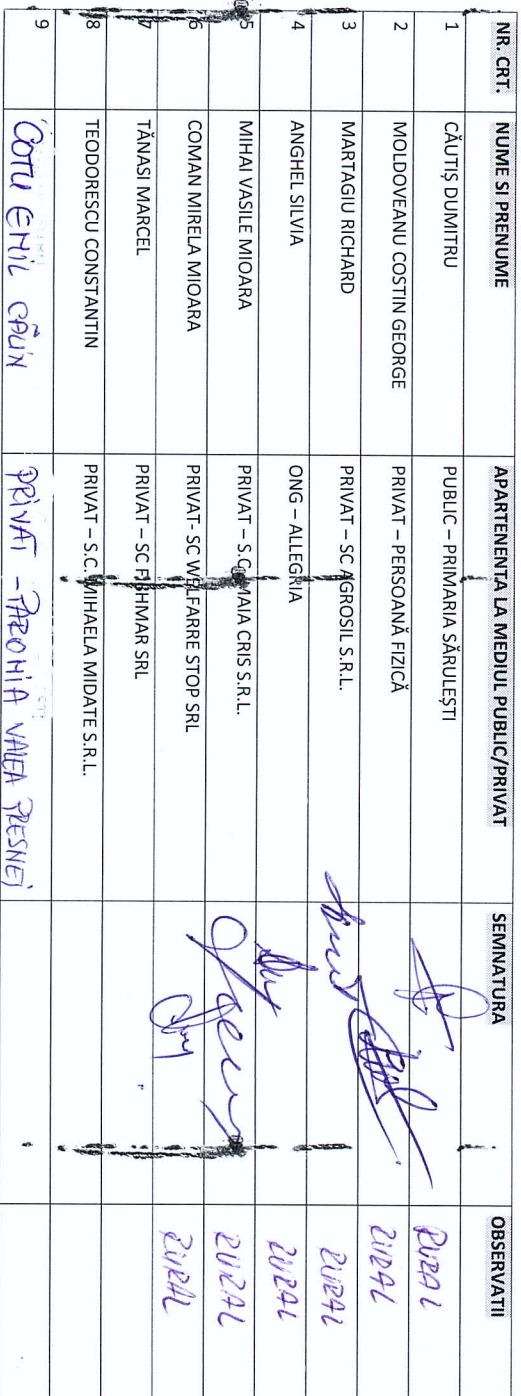 NR. CRT. NUME SI PRENUME APARTENENTA LA MEDIUL PUBLIC/PRIVAT SEMNATURA OBSERVATII
1 CĂUTIȘ DUMITRU PUBLIC – PRIMARIA SĂRULEȘTI RURAL
2 MOLDOVEANU COSTIN GEORGE PRIVAT – PERSOANĂ FIZICĂ RURAL
3 MARTAGIU RICHARD PRIVAT – SC AGROSIL S.R.L. RURAL
4 ANGHEL SILVIA ONG – ALLEGRIA RURAL
5 MIHAI VASILE MIOARA PRIVAT – S.C. MAIA CRIS S.R.L. RURAL
6 COMAN MIRELA MIOARA PRIVAT- SC WELFARRE STOP SRL RURAL
7 TĂNASI MARCEL PRIVAT – SC FISHMAR SRL
8 TEODORESCU CONSTANTIN PRIVAT – S.C. MIHAELA MIDATE S.R.L.
9 COTU EMIL CĂLIN PRIVAT – PAROHIA VALEA PRESNEI